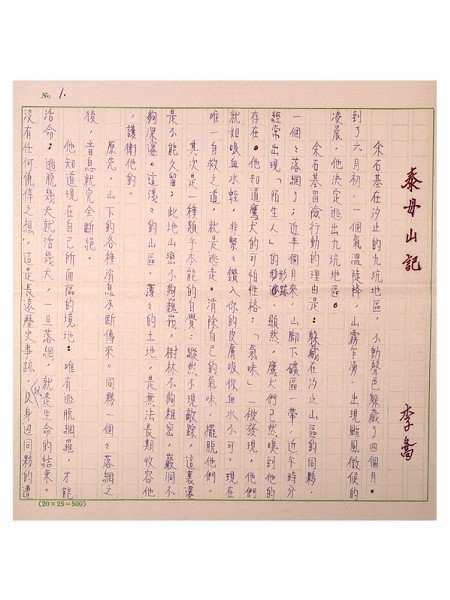 No. 1.
泰姆山記 李喬
余石基在汐止的九坑地區,不動聲色躲藏了四個月。
到了六月初,一個氣溫陡降,山霧乍湧,出現颱風徵候的
凌晨,他決定逃出九坑地區。
余石基冒險行動的理由是:躲藏在汐止山區的同夥,
一個々落網了;近半個月來,山腳下礦區一帶,近午時分
經常出現「陌生人」的形跡,顯然,鷹犬們已然嗅到他的
存在。他知道鷹犬的可怕性格;「氣味」一被發現,他們
就如吸血水蛭,非緊々鑽入你的皮膚吸你血水不可。現在
唯一自救之道,就是逃走。消除自己的氣味,擺脫他們。
其次是一種類乎本能的自覺:縱然不現敵踪,這裏還
是不能久留;此地山巒不夠巍莪,樹林不夠稠密,巖洞不
夠深邃。這淺々的山區,薄々的土地,是無法長期收容他
,護衛他的。
原先,山下的各種消息不斷傳來。同夥一個々落網之
後,音息就完全斷絕。
他知道現在自己所面臨的境地:唯有逃脫網羅,才能
活命;逃脫幾天就活幾天,一旦落網,就是生命的結束。
沒有任何僥倖之想。這是長遠歷史事跡,以及身邊同夥的遭
(20×25=500)